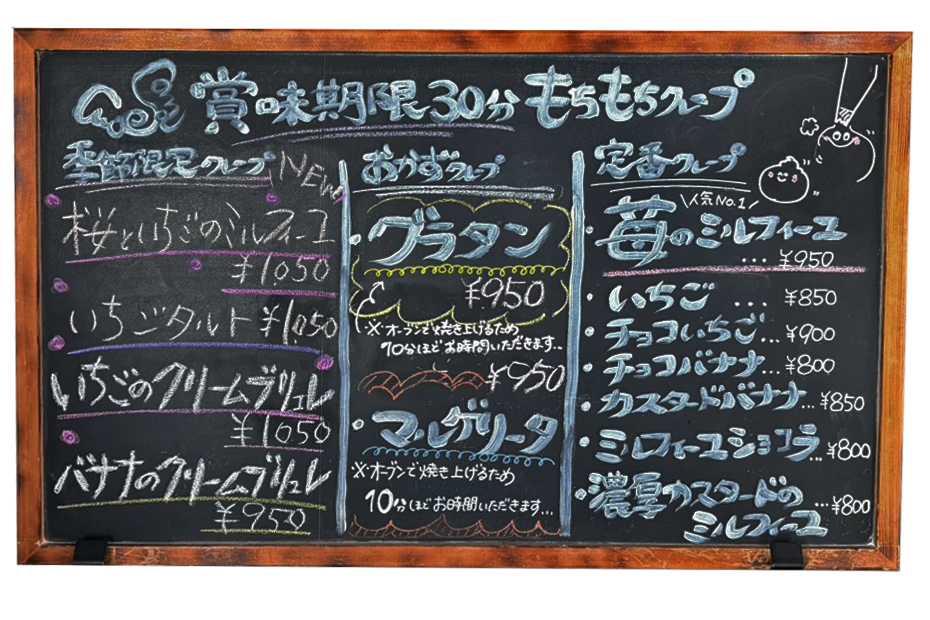 賞味期限30分 もちもちクレープ
季節限定クレープ
NEW
桜といちごのミルフィーユ
¥1050
いちごタルト ¥1,050
いちごのクリームブリュレ
¥1050
バナナのクリームブリュレ
¥950
おかずクレープ
・グラタン
¥950
※オーブンで焼き上げるため
10分ほどお時間いただきます...
¥950
・マルゲリータ
※オーブンで焼き上げるため
10分ほどお時間いただきます...
定番クレープ
\人気No.1/
・苺のミルフィーユ
... ¥950
・いちご ... ¥850
・チョコいちご... ¥900
・チョコバナナ... ¥800
・カスタードバナナ... ¥850
・ミルフィーユショコラ... ¥800
・濃厚カスタードの
ミルフィーユ ... ¥800